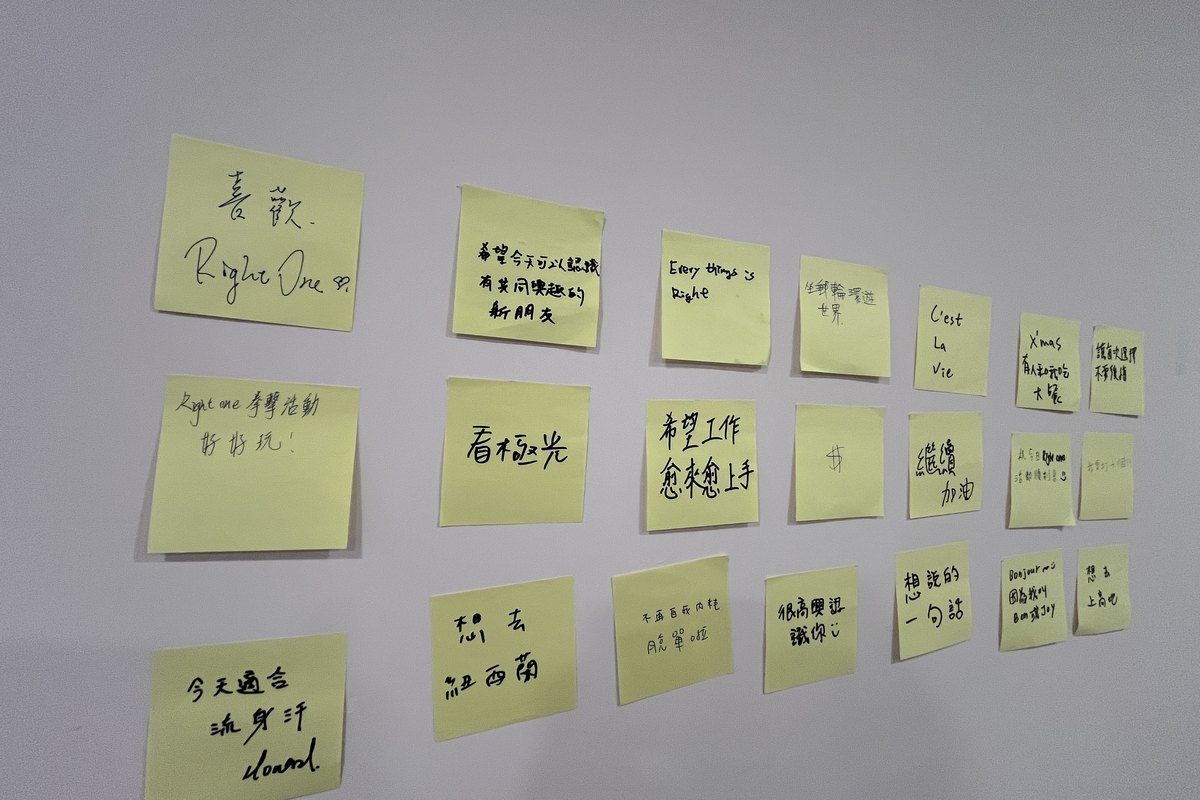 喜歡.
Right One
希望今天可以認識
有共同興趣的
新朋友
Every things is
Right
坐郵輪環遊
世界.
C'est
La
Vie
X'mas
有人和我吃
大餐
讓每次選擇
不要後悔
Right one 拳擊活動
好好玩!
看極光
希望工作
愈來愈上手
$
繼續
加油
今日 Right one
活動順利
今天適合
流身汗
Howard.
想去
紐西蘭
不再自我內耗
脫單啦
很高興認
識你
想說的
一句話
Bonjour
因為我叫
Bon
JOY
想去
上高